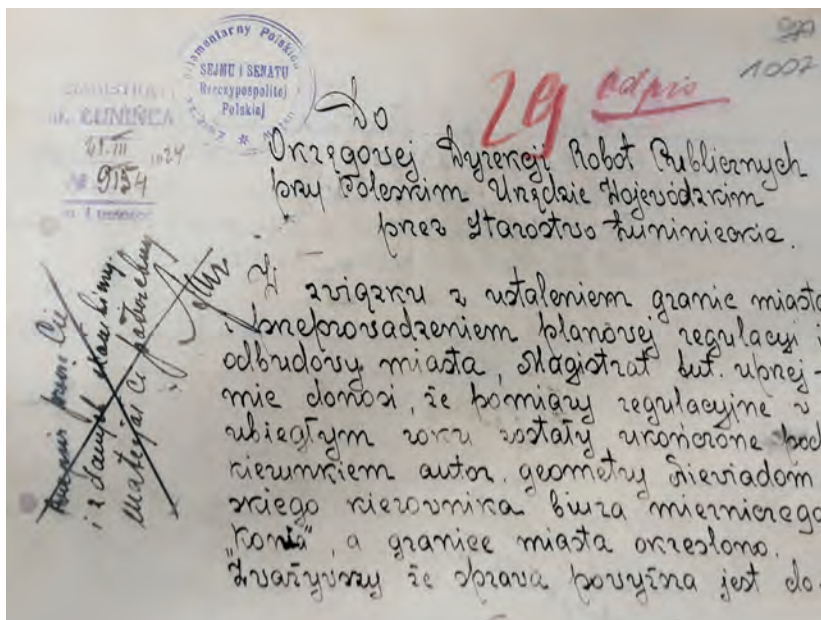 999
1007
29 odpis
SEJMU i SENATU
Rzeczypospolitej
Polskiej
ŁUNIŃCA
21.III 1924
№ 9154
Do
Okręgowej Dyrekcji Robot Publicznych
przy Poleskim Urzędzie Wojewódzkim
przez Starostwo Łuninieckie.
W związku z ustaleniem granic miasta
i przeprowadzeniem planowej regulacji i
odbudowy miasta, Magistrat tut. uprzej-
mie donosi, że pomiary regulacyjne w
ubiegłym roku zostały ukończone pod
kierunkiem autor. geometry Nieviadom
skiego kierownika biura mierniczego
"Konia", a granice miasta określono.
Zważywszy że sprawa powyższa jest do-
i z danych
materjał Ci potrzebny